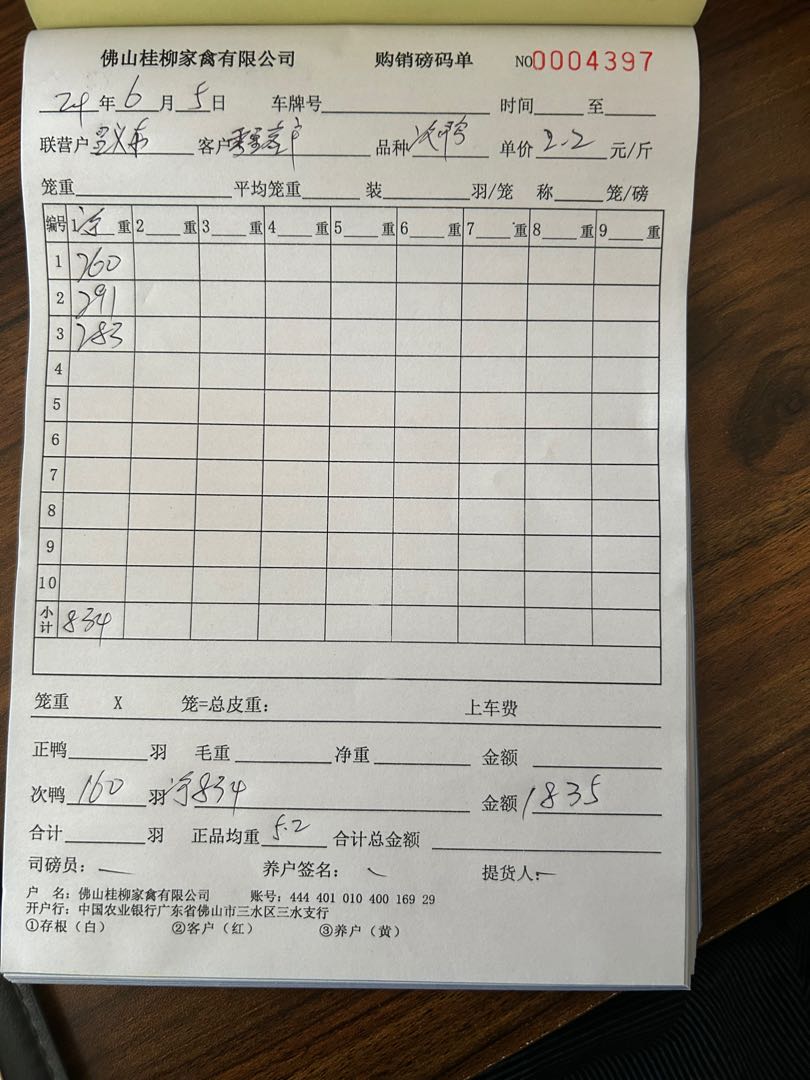 佛山桂柳家禽有限公司 购销磅码单 NO0004397
24年6月5日 车牌号 时间 至
联营户 客户 品种次鸭 单价2.2元/斤
笼重 平均笼重 装 羽/笼 称 笼/磅
编号 1净重 2 重 3 重 4 重 5 重 6 重 7 重 8 重 9 重
1 260
2 291
3 283
4
5
6
7
8
9
10
小计 834
笼重 X 笼=总皮重: 上车费
正鸭 羽 毛重 净重 金额
次鸭160羽净834 金额1835
合计 羽 正品均重5.2 合计总金额
司磅员: 养户签名: 提货人:
户 名: 佛山桂柳家禽有限公司 账号: 444 401 010 400 169 29
开户行: 中国农业银行广东省佛山市三水区三水支行
①存根(白) ②客户(红) ③养户(黄)